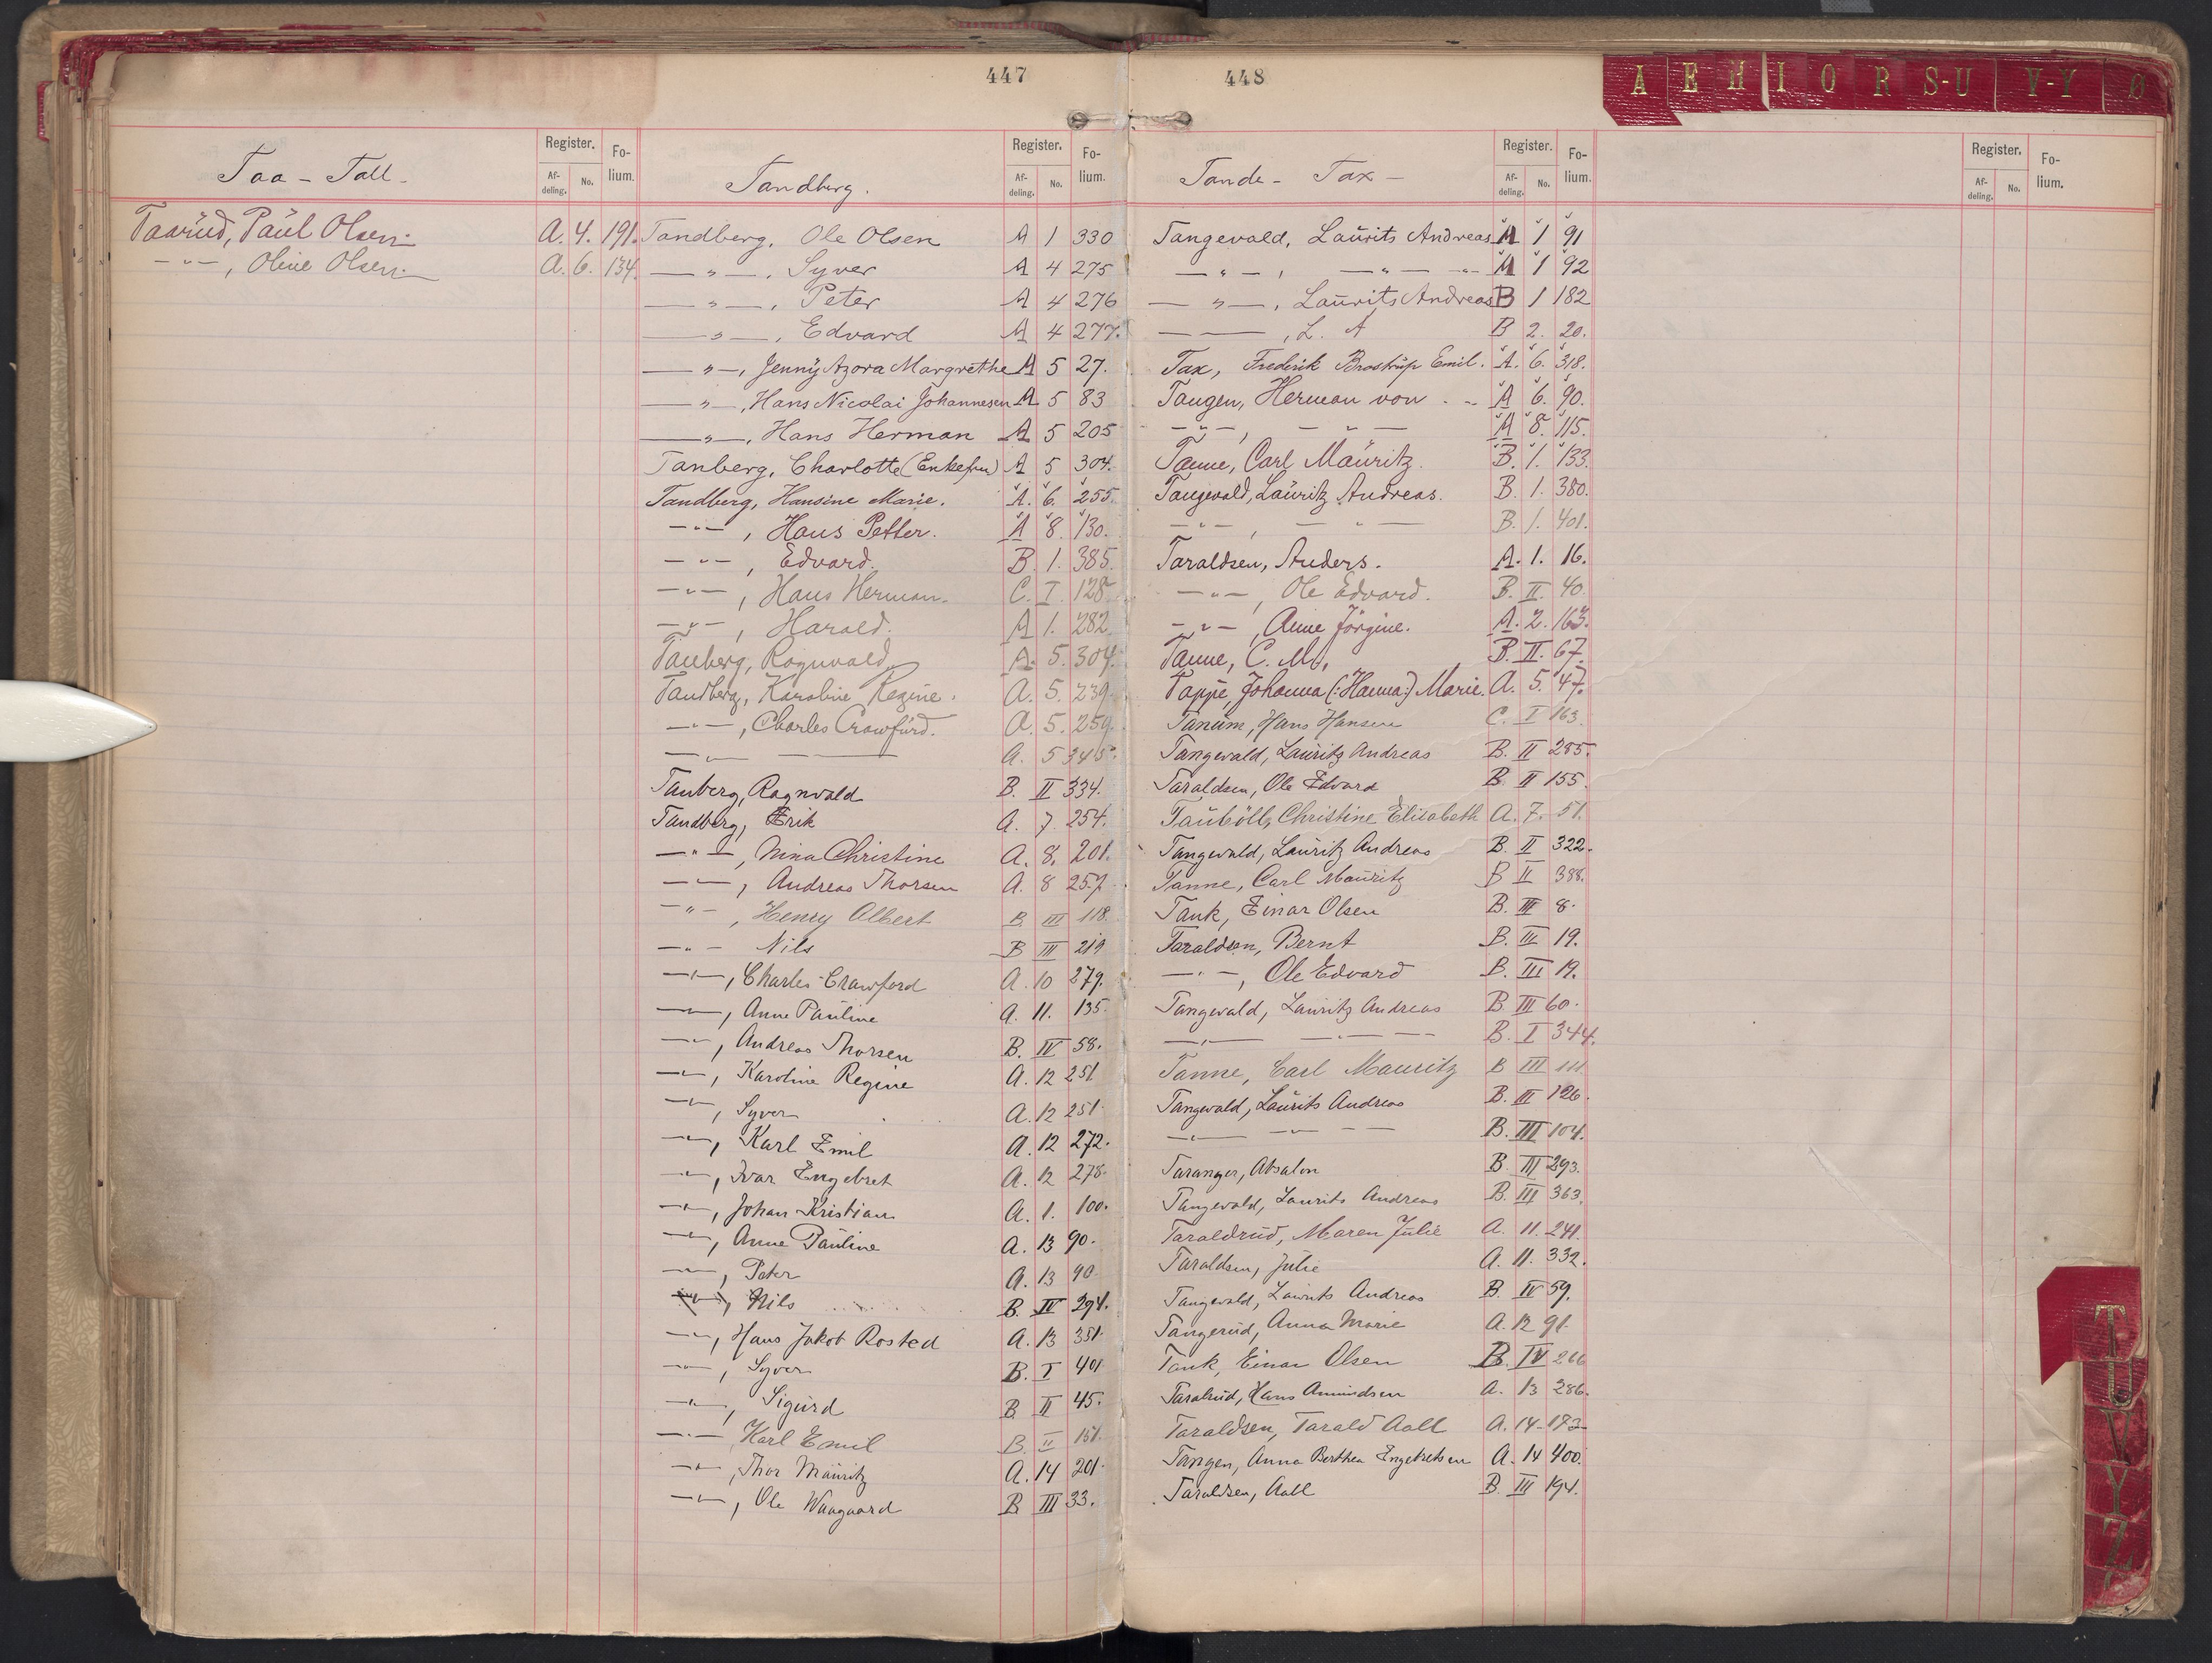 447
Taa - Tall -
Register.
Af-deling.
No.
Fo-lium.
Taarud, Paul Olsen. A. 4. 191.
-"-, Oline Olsen. A. 6. 134.
Tandberg.
Register.
Af-deling.
No.
Fo-lium.
Tandberg, Ole Olsen A 1 330
-"-, Syver A 4 275
-"-, Peter A 4 276
-"-, Edvard A 4 277.
-"-, Jenny Azora Margrethe A 5 27.
-"-, Hans Nicolai Johannesen A 5 83
-"-, Hans Herman A 5 205
Tanberg, Charlotte (Enkefru) A 5 304.
Tandberg, Hansine Marie. A. 6. 255.
-"-, Hans Petter. A 8. 130.
-"-, Edvard. B. 1. 385.
-"-, Hans Herman. C. I. 128
-"-, Harald. A 1. 282.
Tanberg, Ragnvald A. 5. 304.
Tandberg, Karoline Regine. A. 5. 239.
-"-, Charles Crawfurd. A. 5. 259.
-"- — A. 5 345.
Tanberg, Ragnvald B. II 334.
Tandberg, Erik A. 7. 254.
-"-, Nina Christine A. 8. 201.
-"-, Andreas Thorsen A. 8 257.
-"-, Henry Albert B III 118.
-"- Nils B III 219
-"-, Charles Crawford A. 10 279.
-"-, Anne Pauline A. 11. 135.
-"-, Andreas Thorsen B. IV 58.
-"-, Karoline Regine A. 12 251
-"-, Syver A. 12 251.
-"-, Karl Emil A. 12 272.
-"-, Ivar Engebret A. 12 278.
-"-, Johan Kristian A. 1. 100.
-"-, Anne Pauline A. 13 90.
-"-, Peter A. 13 90.
-"-, Nils B. IV 294.
-"-, Hans Jakob Rosted A. 13 351.
-"-, Syver B. I 401
-"-, Sigurd B II 45.
-"- Karl Emil B. II 151.
-"-, Thor Mauritz A. 14 201.
-"-, Ole Waagaard B III 33.
448
A E H I O R S-U V-Y Ø
Tande - Tax -
Register.
Af-deling.
No.
Fo-lium.
Tangevald, Laurits Andreas A 1 91
-"-, -"- -"- A 1 92
-"-, Laurits Andreas B 1 182
——, L. A B 2. 20.
Tax, Frederik Brostrup Emil. A. 6. 318.
Tangen, Herman von. - A 6. 90.
-"-, -"- A 8. 115.
Tanne, Carl Mauritz. B. 1. 133.
Tangevald, Lauritz Andreas. B. 1. 380.
-"-, -"- B. 1. 401.
Taraldsen, Anders. A. 1. 16.
-"-, Ole Edvard. B. II. 40.
-"-, Anne Jörgine. A. 2. 163.
Tanne, C. M., B. II. 67.
Tappe, Johanna (: Hanna:) Marie. A. 5. 47.
Tanum, Hans Hansen C. I 163.
Tangevald, Lauritz Andreas B. II 285.
Taraldsen, Ole Edvard B. II 155.
Tauböll, Christine Elisabeth A. 7. 51.
Tangevald, Lauritz Andreas B. II 322.
Tanne, Carl Mauritz B II 388.
Tank, Einar Olsen B. III 8.
Taraldsen, Bernt B. III 19.
-"-, Ole Edvard B. III 19.
Tangevald, Lauritz Andreas B. III 60.
-"- -"- — B. I 344.
Tanne, Carl Mauritz B III 111
Tangevald, Laurits Andreas B. III 126.
-"- -"- - — B. III 104.
Taranger, Absalon B. III 293.
Tangevald, Laurits Andreas B. III 363.
Taraldrud, Maren Julie A. 11. 241.
Taraldsen, Julie A. 11. 332.
Tangevald, Laurits Andreas B. IV 59.
Tangerud, Anna Marie A. 12 91.
Tank, Einar Olsen B. IV 266
Taralrud, Hans Amundsen A. 13 286.
Taraldsen, Tarald Aall A. 14. 183
Tangen, Anna Berthea Engebretsen A. 14 400.
Taraldsen, Aall B. III 194.
Register.
Af-deling.
No.
Fo-lium.
T U V Y Z